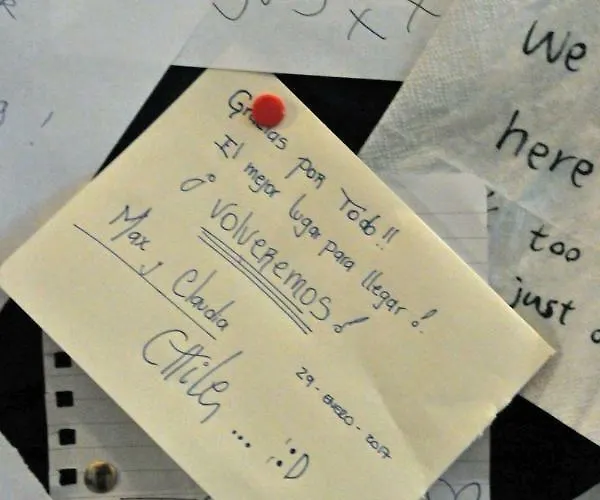 Gracias por Todo!!
El mejor lugar para llegar!.
¡ VOLVEREMOS!
Max y Claudia
CHILE
.... ¡:D
29 - ENERO - 2017
We
here
too
just
x x